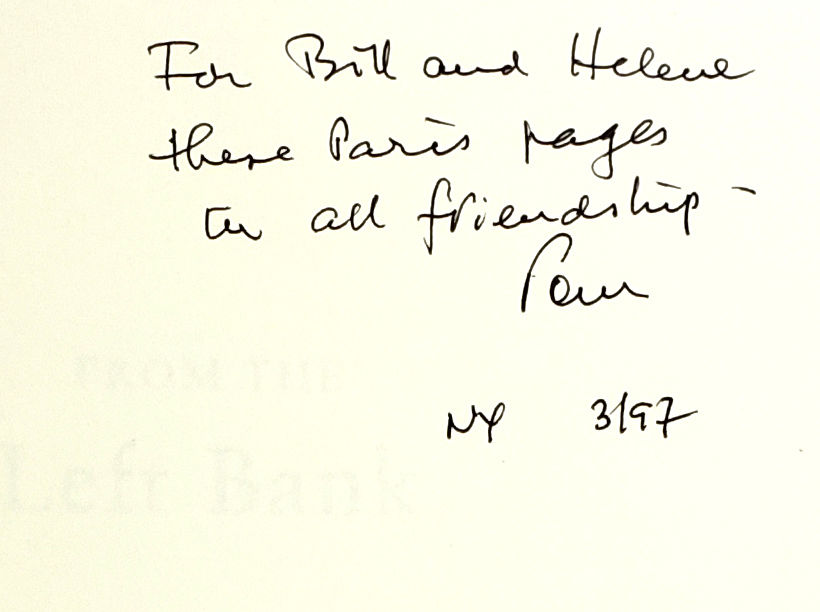 For Bill and Helene
these Paris pages
in all friendship –
Tom
NY 3/97
FROM THE
Left Bank